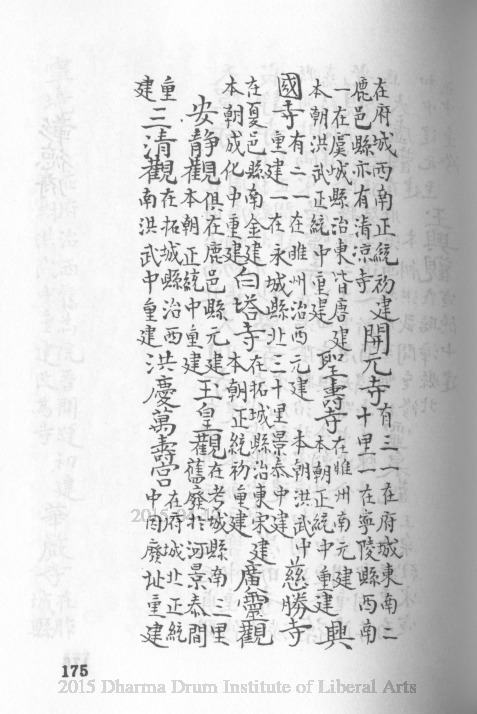 在府城西南正統初建鹿邑縣亦有清涼寺開元寺有三一在府城東南二十里一在寧陵縣西南
一在虞城縣治東皆唐建本朝洪武正統中重建聖壽寺在睢州南元建本朝正統中重建興
國寺有二一在睢州治西元建 本朝洪武中重建一在永城縣北三十里景泰中建慈勝寺
在夏邑縣南金建本朝成化中重建白塔寺在拓城縣治東宋建本朝正統初重建廣靈觀
安靜觀俱在鹿邑縣元建本朝正統中重建玉皇觀在考城縣南三里舊廢於河景泰間
重建三清觀在拓城縣治西南洪武中重建洪慶萬壽宮在府城北正統中因廢址重建
175
2015 Dharma Drum Institute of Liberal Arts